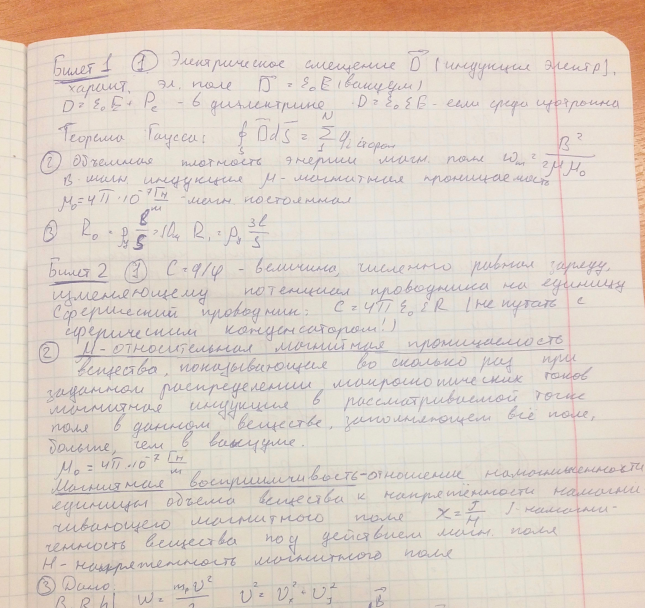 Билет 1 ① Электрическое смещение D⃗ (индукция электр),
характ. эл. поле D⃗ = ε₀E (вакуум)
D = ε₀E + Pe - в диэлектрике · D = ε₀εE - если среда изотропна
Теорема Гаусса: ∮ₛ D⃗dS⃗ = Σ₁ᴺ qᵢ сторон
② Объемная плотность энергии магн. поля ωm = B²/2μμ₀
B - магн. индукция μ - магнитная проницаемость
μ₀ = 4π·10⁻⁷ Гн/м - магн. постоянная
③ R₀ = ρ l/S = R₁ = ρ 3l/S
Билет 2 ① C = q/φ - величина, численно равная заряду,
изменяющему потенциал проводника на единицу
Сферический проводник: C = 4πε₀εR (не путать с
сферическим конденсатором!)
② μ - относительная магнитная проницаемость
вещества, показывающая во сколько раз при
заданном распределении макроскопических токов
магнитная индукция в рассматриваемой точке
поля в данном веществе, заполняющем всё поле,
больше, чем в вакууме.
μ₀ = 4π·10⁻⁷ Гн/м
Магнитная восприимчивость - отношение намагниченности
единицы объема вещества к напряжённости намагни
чивающего магнитного поля χ = J/H J - намагни-
ченность вещества под действием магн. поля
H - напряженность магнитного поля
③ Дано: W = υ² υ² = υₓ² + υ²